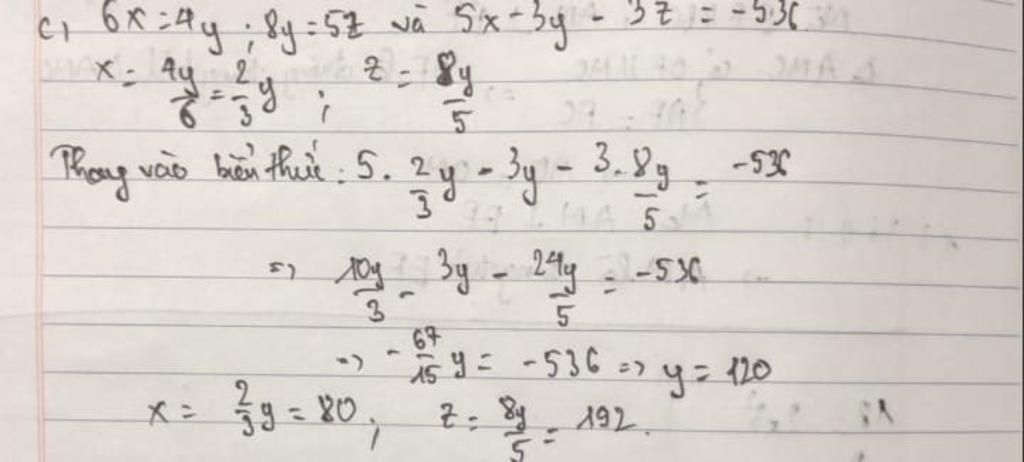 c, 6x=4y ; 8y=5z và 5x-3y-3z=-536
x=4y/6=2/3y ; z=8y/5
Thay vào biểu thức: 5.2/3y-3y-3.8y/5=-536
=> 10y/3-3y-24y/5=-536
=> -67/15y=-536 => y=120
x=2/3y=80 ; z=8y/5=192.